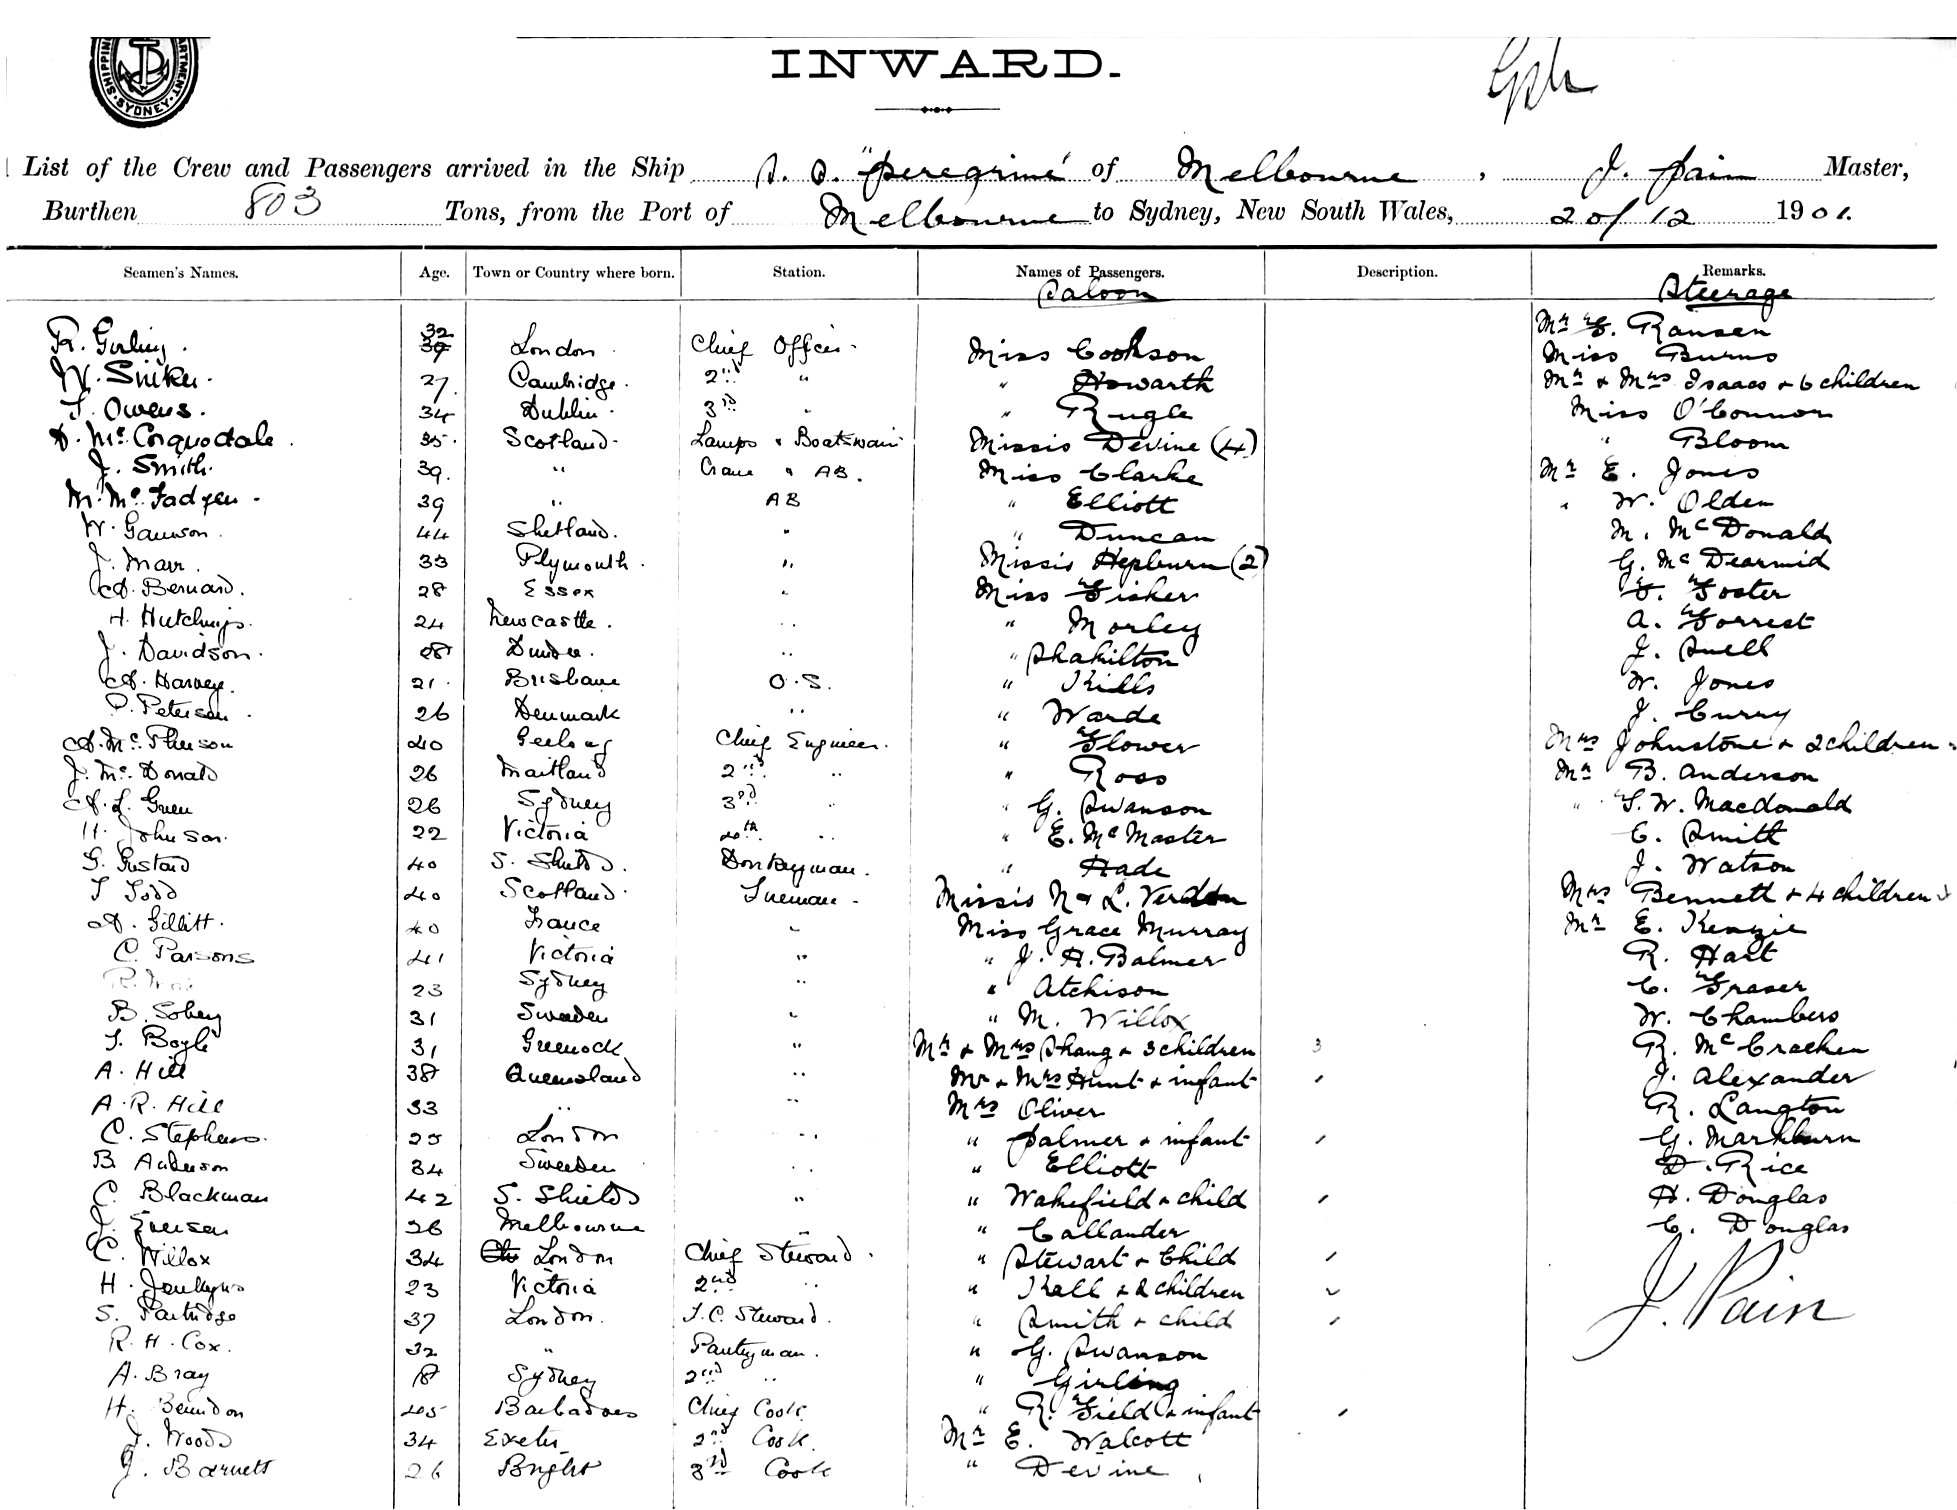 SHIPPING DEPARTMENT SYDNEY
INWARD.
List of the Crew and Passengers arrived in the Ship S. S. "Peregrine" of Melbourne, J. Pain Master,
Burthen 803 Tons, from the Port of Melbourne to Sydney, New South Wales, 20/12 1901.
Seamen's Names. Age. Town or Country where born. Station. Names of Passengers. Description. Remarks.
Saloon Steerage
Mr F. Ransen
R. Girling. 32 39 London Chief Officer Miss Cookson Miss Burns
W. Siviker. 27 Cambridge. 2nd " " Howarth Mr & Mrs Isaacs & 6 children
T. Owens. 34 Dublin. 3rd " " Rugle Miss O'Connor
D. McCorquodale. 35. Scotland. Lamps & Boatswain Missis Devine (4) " Bloom
J. Smith. 39. " Crane " AB. Miss Clarke Mr E. Jones
M. McFadyen 39 " AB " Elliott " W. Olden
W. Gaunson. 44 Shetland. " " Duncan M. McDonald
J. Marr. 33 Plymouth. " Missis Hepburn (2) G. McDearmid
A. Bernard. 28 Essex " Miss Fisher F. Foster
H. Hutchings. 24 Newcastle. " " Morley A. Forrest
J. Davidson. 28 Dundee. " " Shakilton J. Snell
A. Harvey. 21. Brisbane O.S. " Kills W. Jones
P. Peterson. 26 Denmark " " Warde J. Curry
A. McPherson 40 Geelong Chief Engineer. " Flower Mrs Johnstone & 2 children
J. McDonald 26 Maitland 2nd " " Ross Mr B. Anderson
A. L. Green 26 Sydney 3rd " " G. Swanson " F. W. Macdonald
H. Johnson. 22 Victoria 4th " " E. McMaster C. Smith
G. Gustard 40 S. Shields. Donkeyman. " Hade J. Watson
T Todd 40 Scotland. Fireman Missis N & L. Verdon Mrs Bennett & 4 children
A. Gillitt. 40 France " Miss Grace Murray Mr E. Kenzie
C. Parsons 41 Victoria " " J. A. Balmer R. Hart
23 Sydney " " Atchison C. Fraser
B. Sohey 31 Sweden " " M. Willox W. Chambers
T. Boyle 31 Greenock " Mr & Mrs Shang & 3 children 3 R. McCracken
A. Hill 38 Queensland " Mr & Mrs Hunt & infant J. Alexander
A. R. Hill 33 " " Mrs Oliver R. Langton
C. Stephens. 25 London " " Palmer & infant G. Markburn
B. Anderson 34 Sweden " " Elliott D. Rice
C. Blackman 42 S. Shields " " Wakefield & child H. Douglas
J. Eversen 26 Melbourne " " Callander C. Douglas
C. Willox 34 London Chief Steward. " Stewart & Child
H. Jenkyns 23 Victoria 2nd " " Kell & 2 children
S. Partridge 37 London. F.C. Steward. " Smith & child J. Pain
R. H. Cox. 32 " Pantryman. " G. Swanson
A. Bray 18 Sydney 2nd " " Girling
H. Beundon 45 Barbadoes Chief Cook " R. Field & infant
J. Woods 34 Exeter 2nd Cook. Mr E. Walcott
J. Barnett 26 Bright 3rd Cook " Devine